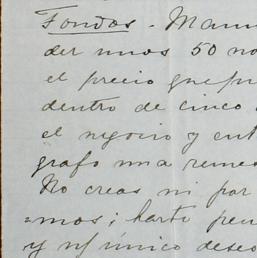 Fondos. - Manu
der unos 50 no
el precio que pu
dentro de cinco
el negocio y ent
grafo una remes
No creas ni por
=mos; harto pen
y n/ único deseo